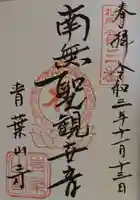 奉拝 令和二年十一月十三日
南無聖観世音
青葉山寺